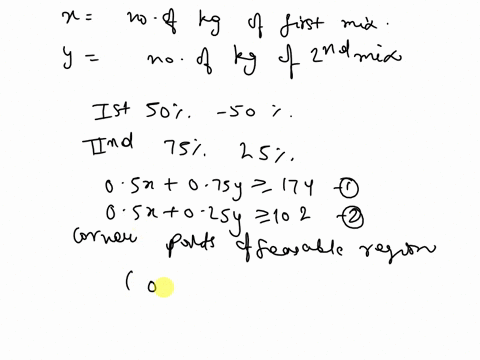 x = no. of kg of first mix.
y = no. of kg of 2nd mix
Ist 50%. -50%.
IInd 75%. 25%.
0.5x + 0.75y ≥ 174 -①
0.5x + 0.25y ≥ 102 -②
corner points of feasable region
( 0